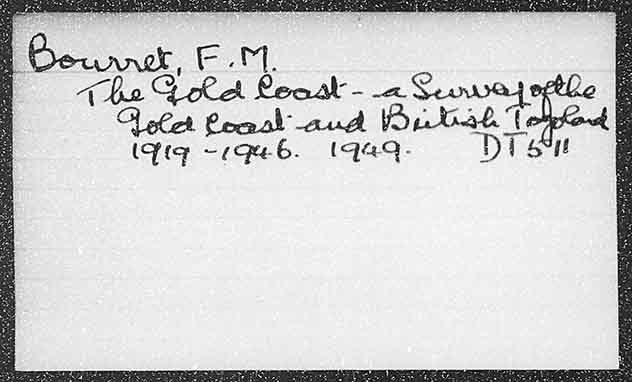 Bourret, F.M.
The Gold Coast - a Survey of the
Gold Coast and British Togoland
1919 - 1946. 1949. DT511